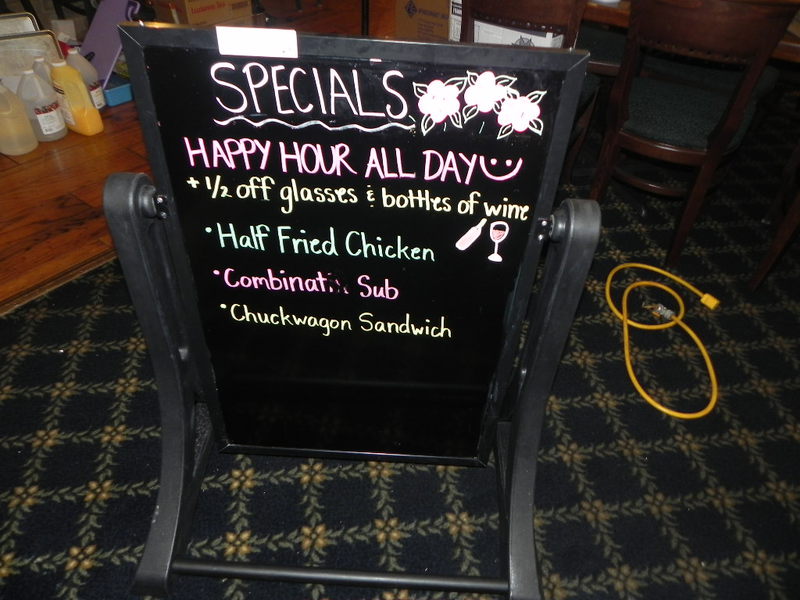 SPECIALS
HAPPY HOUR ALL DAY
+ 1/2 off glasses & bottles of wine
• Half Fried Chicken
• Sub
• Chuckwagon Sandwich